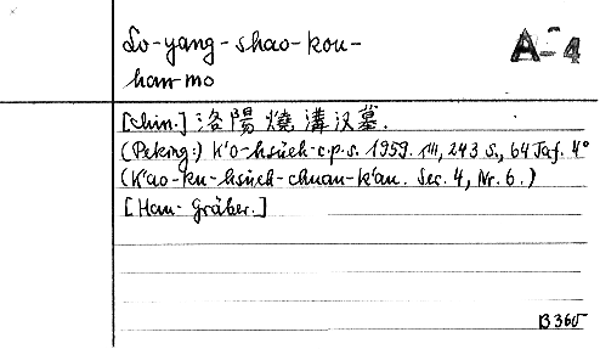 Lo-yang-shao-kou-
han-mo
A-4
[Chin.] 洛陽燒溝汉墓.
(Peking:) K'o-hsüeh-c.p.s. 1959. VIII, 243 S., 64 Taf. 4°
(K'ao-ku-hsüeh-chuan-k'an. Ser. 4, Nr. 6.)
[Han-Gräber.]
B 365